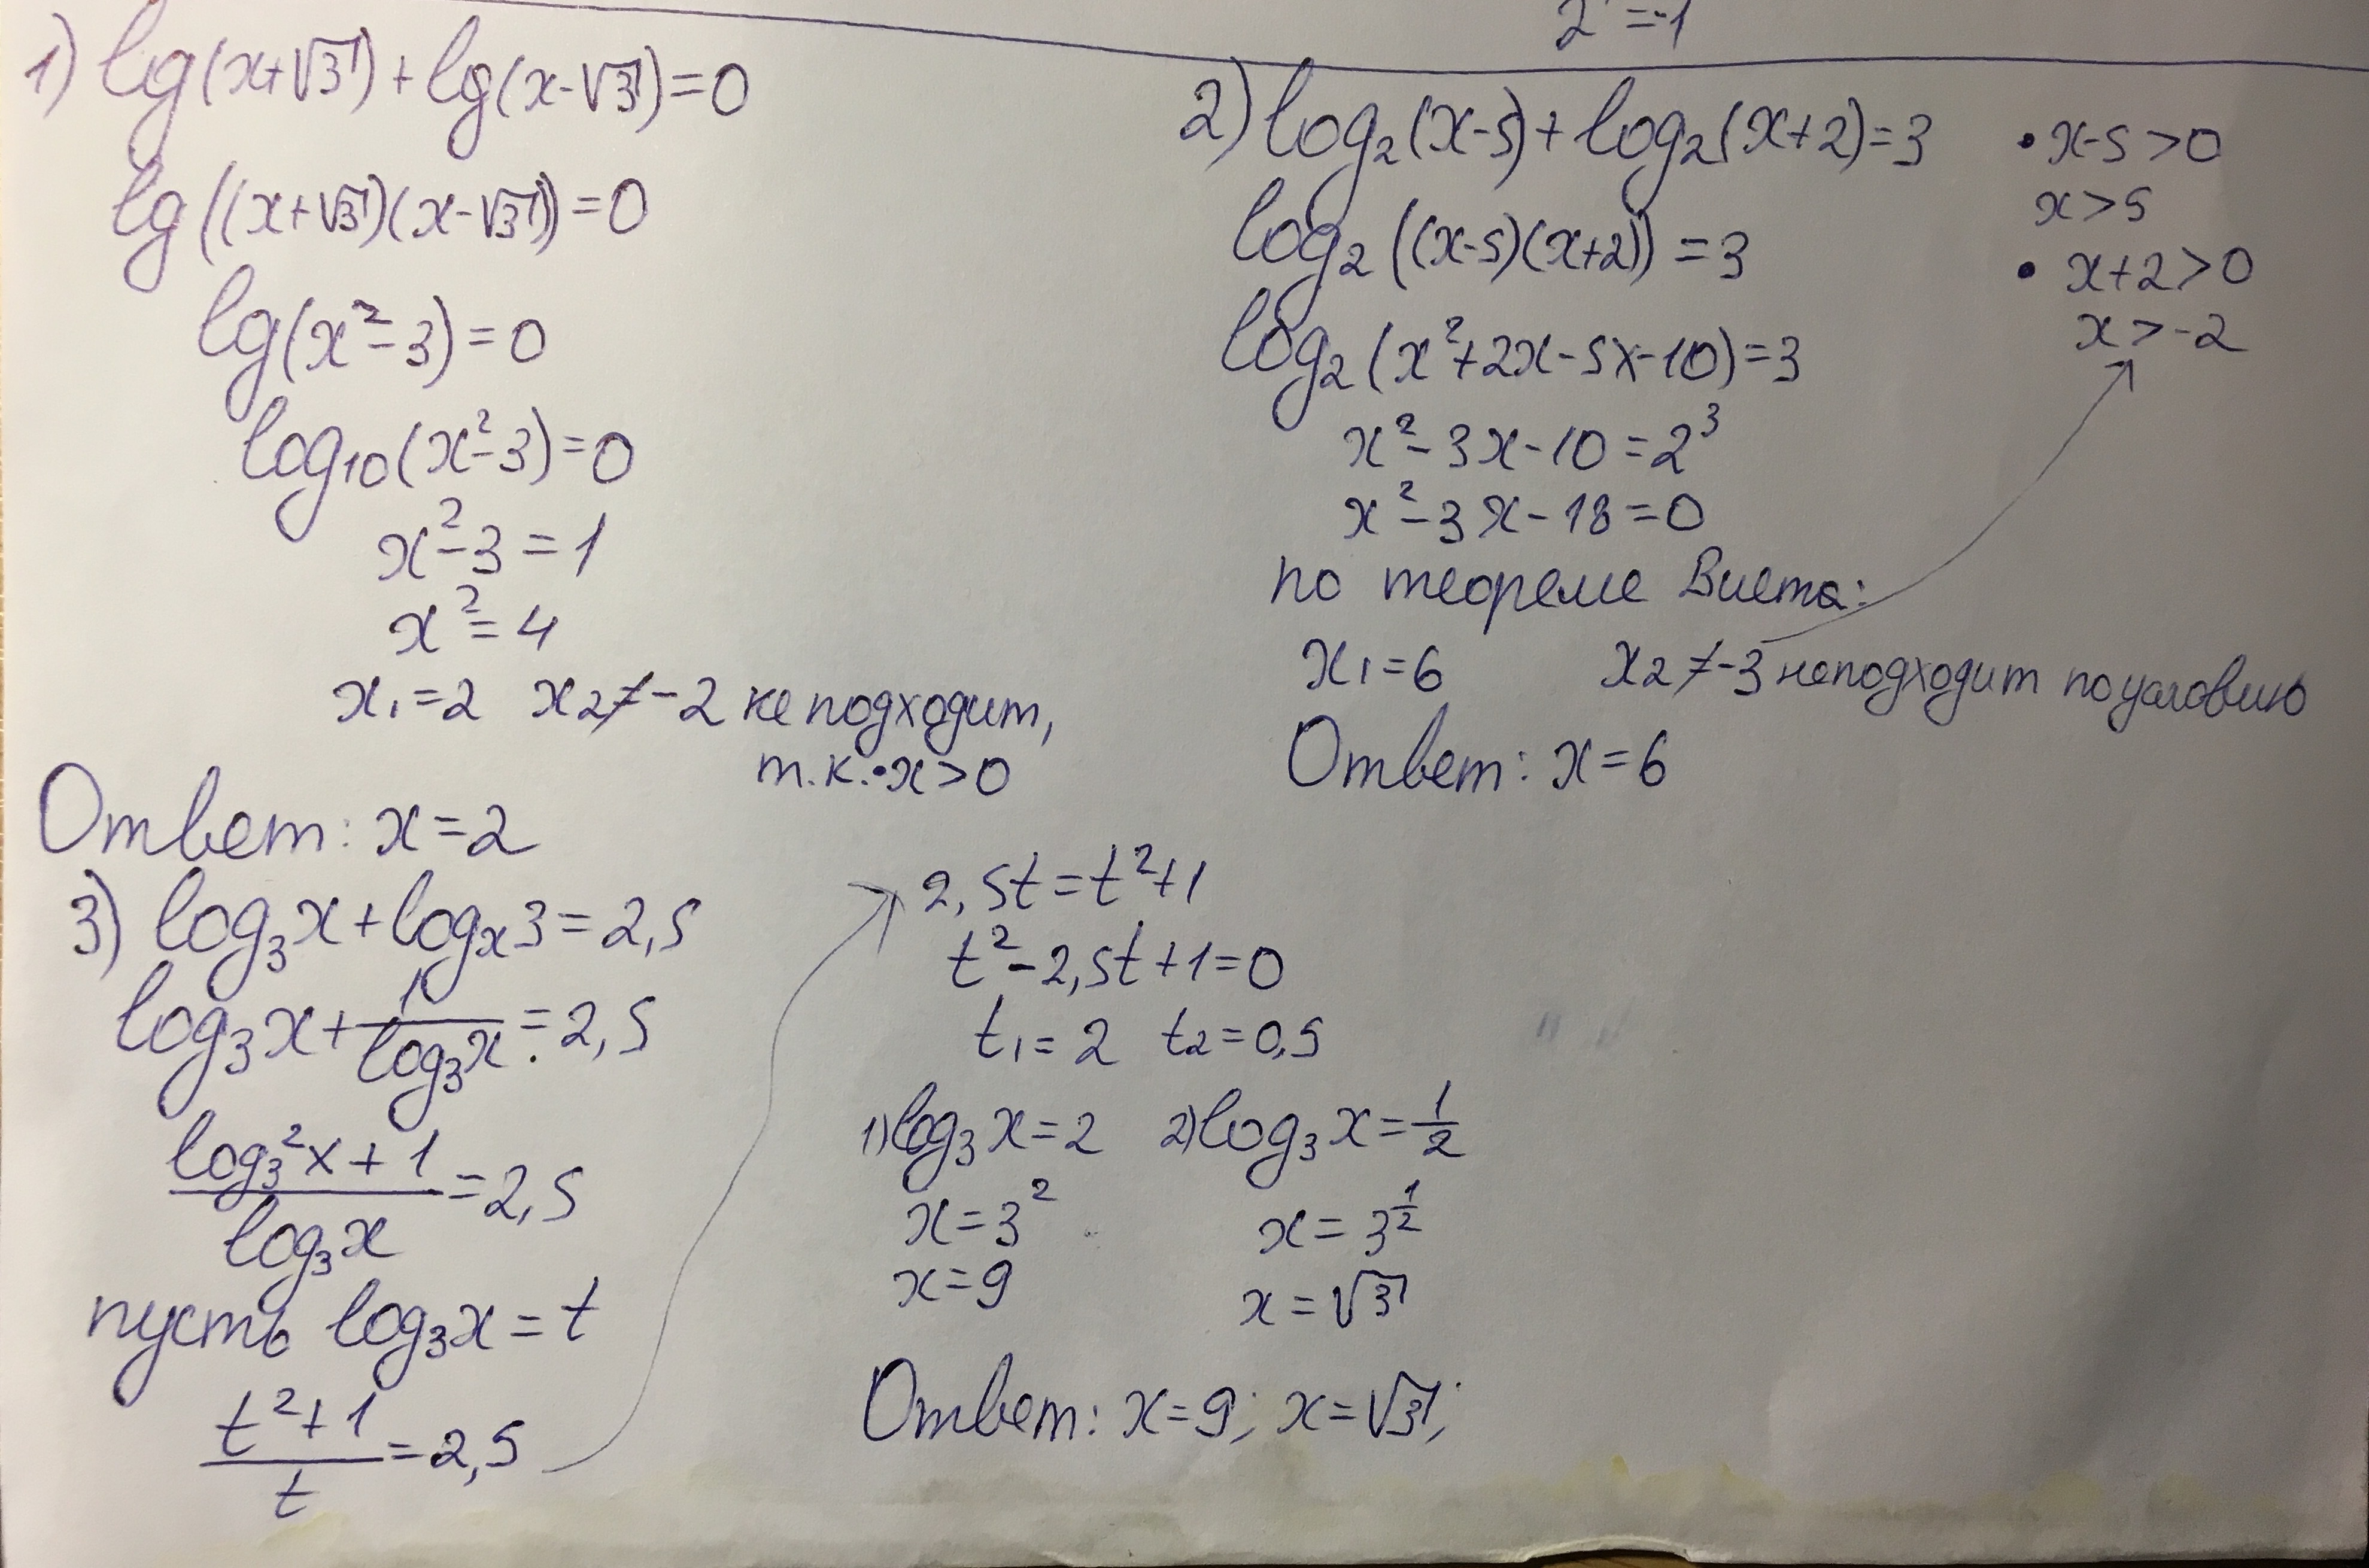 2 =-1
1) lg(x+√3)+lg(x-√3)=0
lg((x+√3)(x-√3))=0
lg(x²-3)=0
log₁₀(x²-3)=0
x²-3=1
x²=4
x₁=2 x₂≠-2 не подходит,
т.к. •x>0
Ответ: x=2
2) log₂(x-5)+log₂(x+2)=3
log₂((x-5)(x+2))=3
log₂(x²+2x-5x-10)=3
x²-3x-10=2³
x²-3x-18=0
по теореме Виета:
x₁=6 x₂≠-3 не подходит по условию
Ответ: x=6
• x-5>0
x>5
• x+2>0
x>-2
3) log₃x+logₓ3=2,5
log₃x+1/log₃x=2,5
(log₃²x+1)/log₃x=2,5
пусть log₃x=t
(t²+1)/t=2,5
2,5t=t²+1
t²-2,5t+1=0
t₁=2 t₂=0,5
1) log₃x=2 2) log₃x=1/2
x=3² x=3^(1/2)
x=9 x=√3
Ответ: x=9; x=√3;